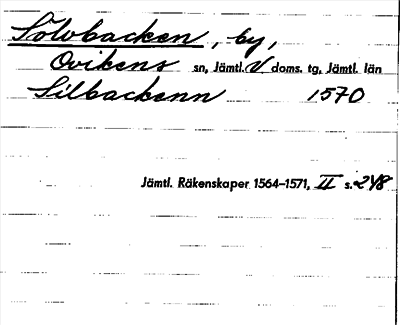 Sölvbacken, by,
Ovikens sn, Jämtl. V doms. tg, Jämtl. län
Silbackenn 1570
Jämtl. Räkenskaper 1564–1571, II s. 248